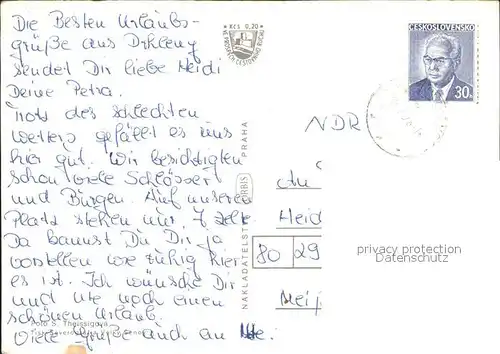 Die Besten Urlaubs-
grüße aus Drkleny
sendet Dir liebe Heidi
Deine Petra.
Trots des schlechten
Wetters gefällt es uns
hier gut. Wir besichtigten
schon viele Schlösser
und Burgen. Auf unserem
Platz stehen nur 7 Zelte.
Da kannst Du Dir ja
vorstellen wie ruhig hier
es ist. Ich wünsche Dir
und Ute noch einen
schönen Urlaub.
Viele Grüße auch an Ute.
Foto S. Theissigová
Kčs 0,20
VE PROSPĚCH CESTOVNÍHO RUCHU
NAKLADATELSTVÍ ORBIS PRAHA
ČESKOSLOVENSKO
30h
NDR
An
Heid
80 29
privacy protection
Datenschutz